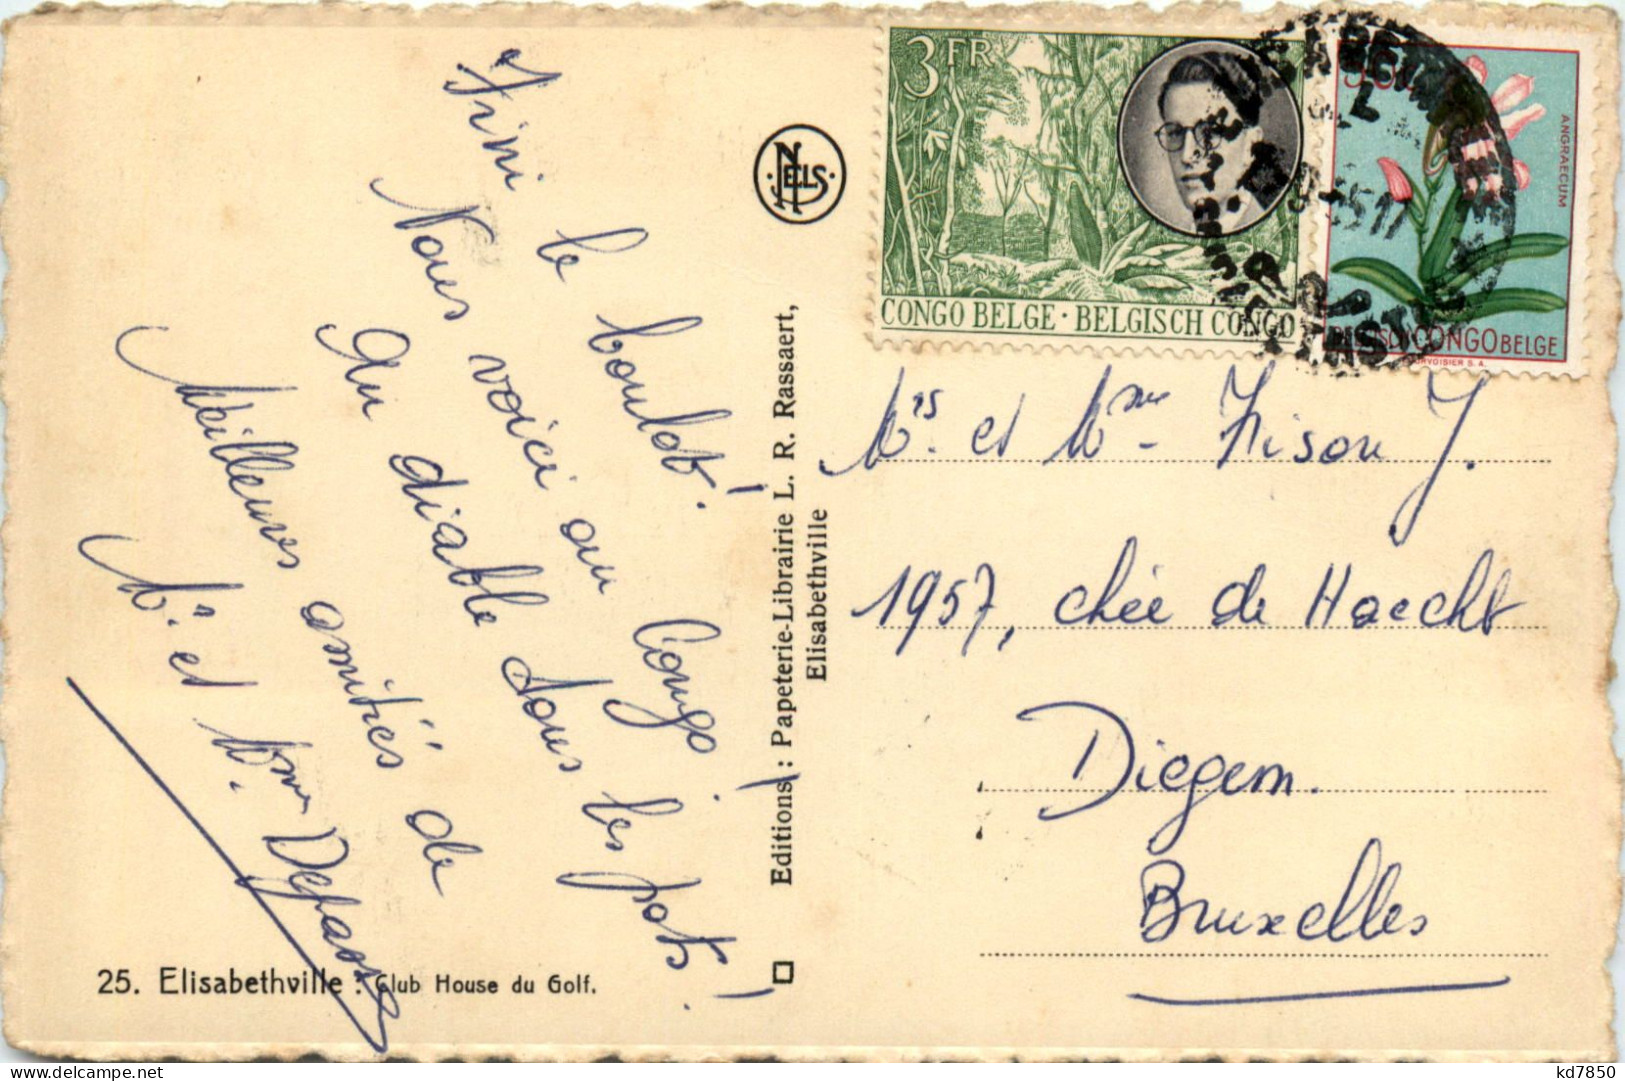 Fini le boulot!
Nous voici au Congo!
Au diable tous les pots!
Meilleures amitiés de
Mr. et Mme
25. Elisabethville : Club House du Golf.
NELS
Editions : Papeterie-Librairie L. R. Rassaert,
Elisabethville
3FR
CONGO BELGE · BELGISCH CONGO
ANGRAECUM
BELGISCH CONGO BELGE
COURVOISIER S. A.
Mrs. et Mme - Frison J.
1957, chée de Haecht
Diegem.
Bruxelles
kd7850